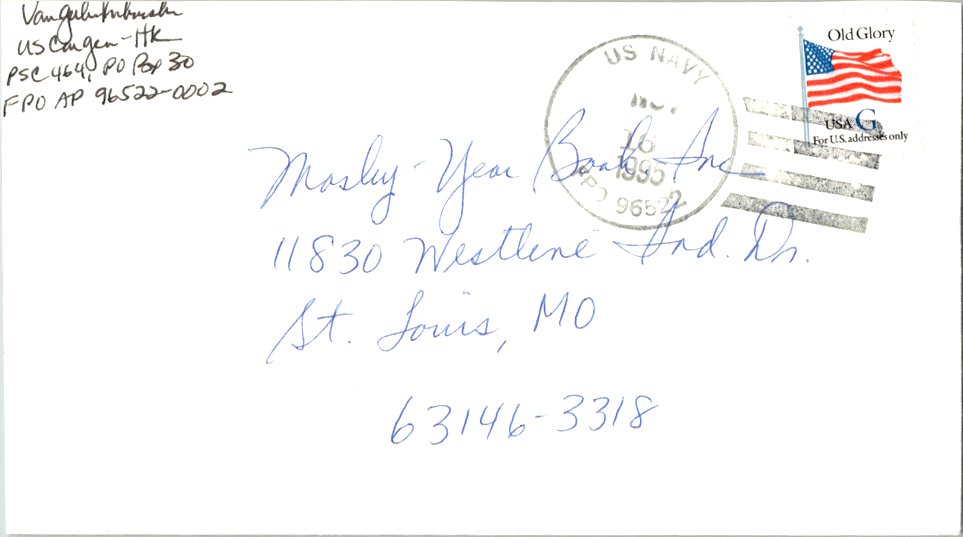 US Congen-HK
PSC 464, PO Box 30
FPO AP 96522-0002
US NAVY
16
1995
FPO 96522
Old Glory
USA G
For U.S. addresses only
Mosby-Year Book, Inc
11830 Westline Ind. Dr.
St. Louis, MO
63146-3318